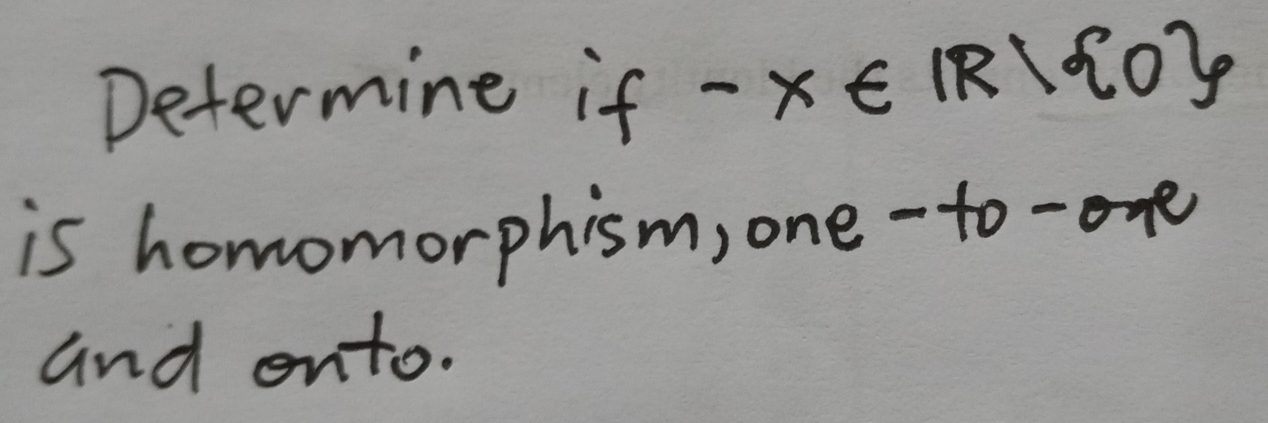 Determine if -x ∈ ℝ\{0}
is homomorphism, one-to-one
and onto.